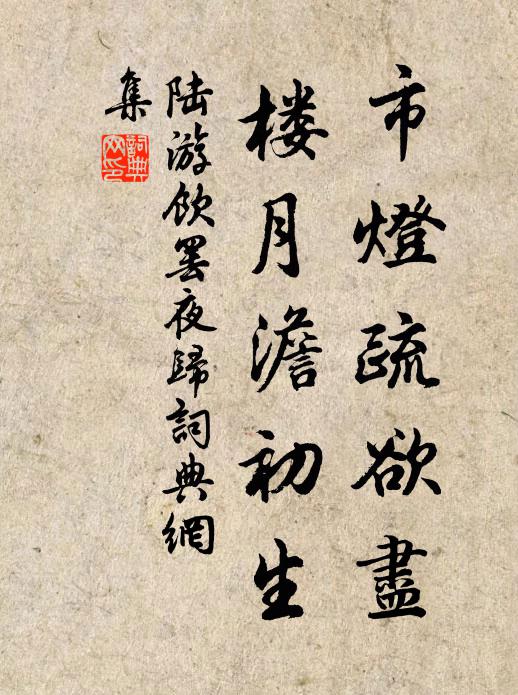 市燈疏欲盡
楼月澹初生
陆游飲罢夜歸詞典網
集
詞典
网印